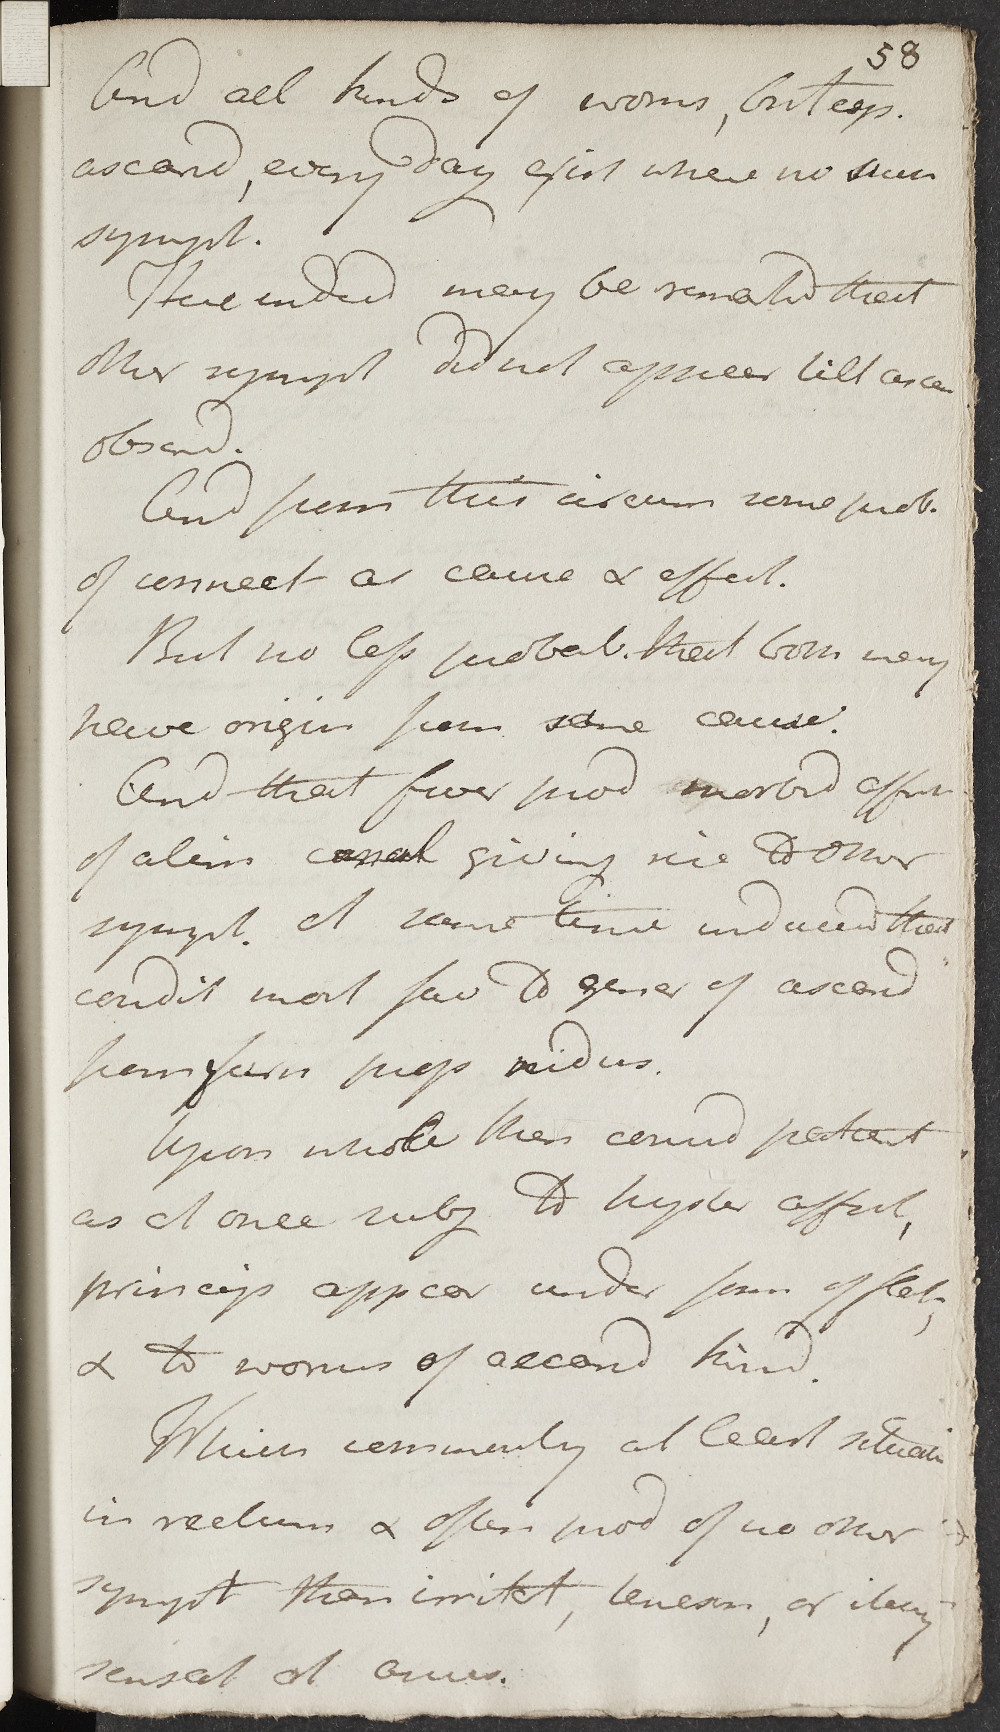 58
And all kinds of worms, but esp.
ascarid, every day exist where no such
sympt.
Here indeed may be remarkd that
other sympt did not appear till ascar
observd.
And from this circum some prob.
of connect as cause & effect.
But no less probab. that both may
have origin from same cause.
And that fever prod morbid affect
of alim canal giving rise to other
sympt. at same time induced that
condit most fav to gener of ascarid
form furn prop nidus.
Upon whole then consid patient
as at once subj to hyster affect,
princip appear under form of flat,
& to worms of ascarid kind.
Which commonly at least situat
in rectum & often prod of no other
sympt than irritat, tenesm, or itchy
sensat at anus.